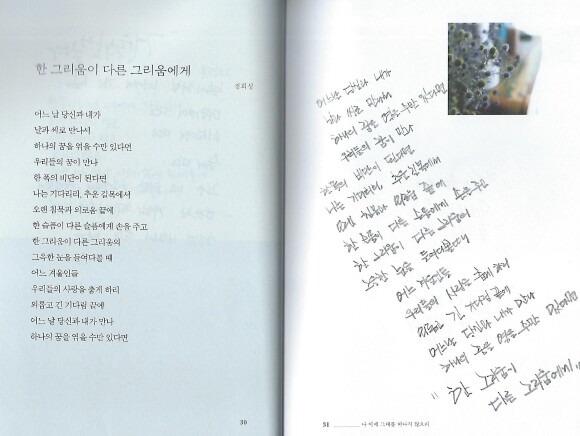 한 그리움이 다른 그리움에게
정희성
어느 날 당신과 내가
날과 씨로 만나서
하나의 꿈을 엮을 수만 있다면
우리들의 꿈이 만나
한 폭의 비단이 된다면
나는 기다리리, 추운 길목에서
오랜 침묵과 외로움 끝에
한 슬픔이 다른 슬픔에게 손을 주고
한 그리움이 다른 그리움의
그윽한 눈을 들여다볼 때
어느 겨울인들
우리들의 사랑을 춥게 하리
외롭고 긴 기다림 끝에
어느 날 당신과 내가 만나
하나의 꿈을 엮을 수만 있다면
30
어느 날 당신과 내가
날과 씨로 만나서
하나의 꿈을 엮을 수만 있다면
우리들의 꿈이 만나
한 폭의 비단이 된다면
나는 기다리리, 추운 길목에서
오랜 침묵과 외로움 끝에
한 슬픔이 다른 슬픔에게 손을 주고
한 그리움이 다른 그리움의
그윽한 눈을 들여다볼 때
어느 겨울인들
우리들의 사랑을 춥게 하리
외롭고 긴 기다림 끝에
어느 날 당신과 내가 만나
하나의 꿈을 엮을 수만 있다면
"한 그리움이
다른 그리움에게"
31 나 이제 그대를 떠나지 않으리